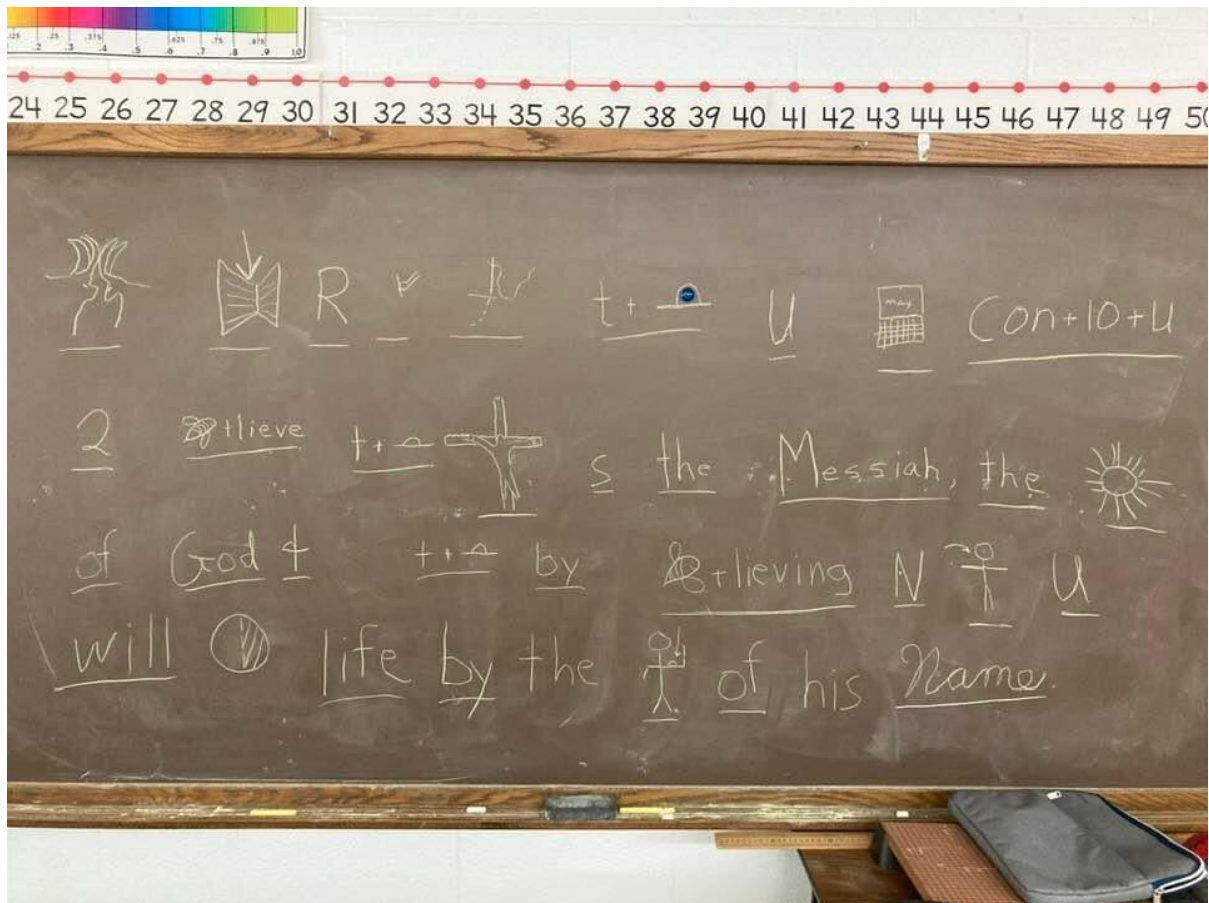 .125 .2 .3 .375 .4 .5 .625 .6 .7 .75 .8 .875 .9 1.0
24 25 26 27 28 29 30 31 32 33 34 35 36 37 38 39 40 41 42 43 44 45 46 47 48 49 50
R t+ U may Con+10+U
2 +lieve t+ s the Messiah, the
of God & t+ by +lieving N U
will life by the of his Name.